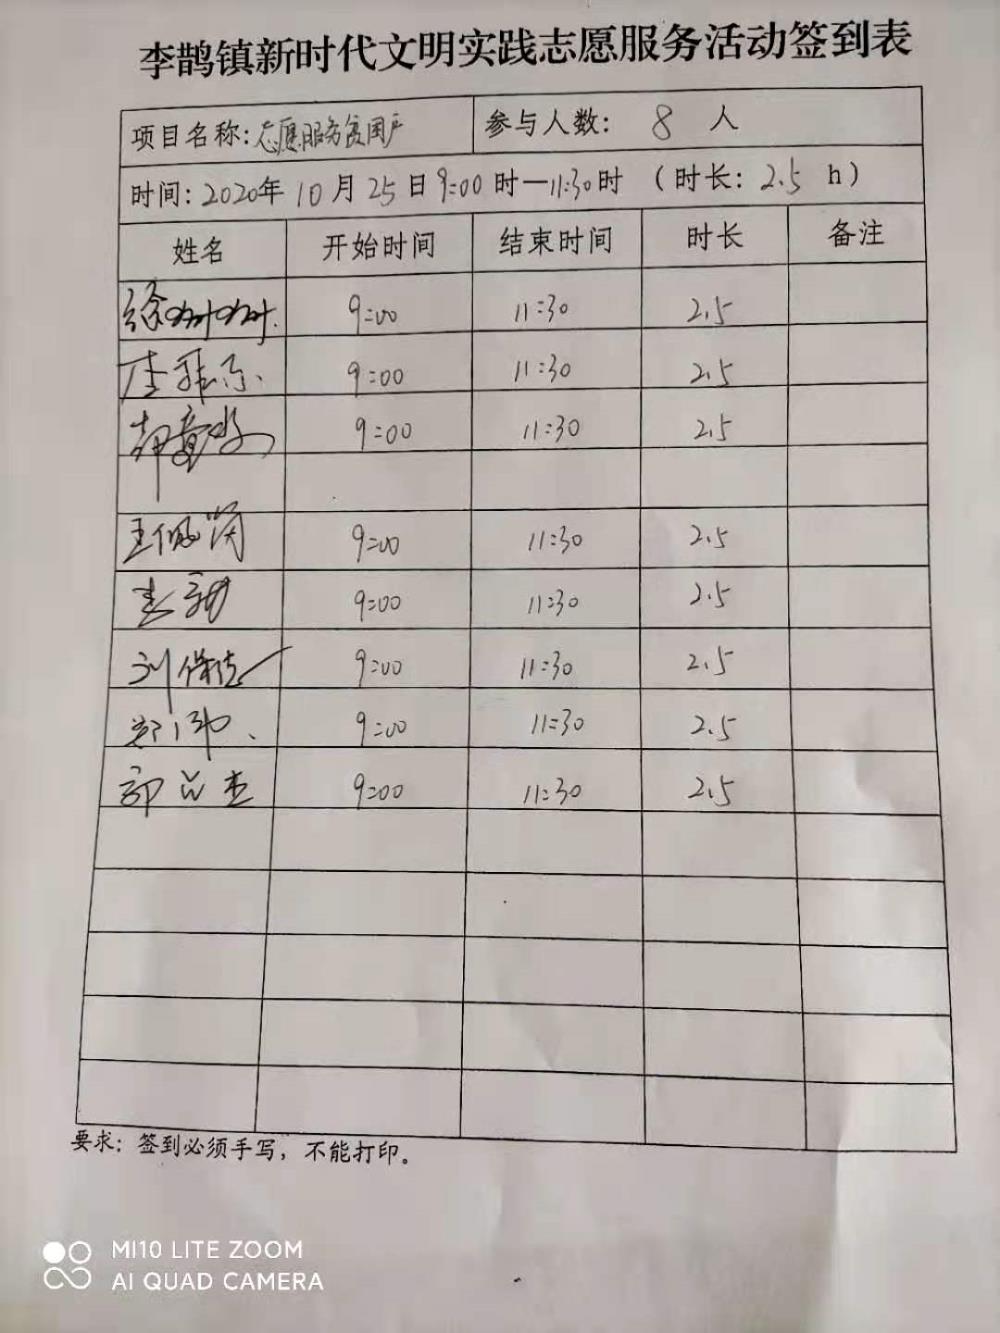 李鹊镇新时代文明实践志愿服务活动签到表
项目名称:志愿服务贫困户 参与人数: 8 人
时间:2020年 10 月 25 日 9:00 时—11:30时 (时长: 2.5 h)
姓名 开始时间 结束时间 时长 备注
徐树树 9:00 11:30 2.5
9:00 11:30 2.5
9:00 11:30 2.5
王佩 9:00 11:30 2.5
9:00 11:30 2.5
刘保信 9:00 11:30 2.5
9:00 11:30 2.5
郭 9:00 11:30 2.5
要求: 签到必须手写, 不能打印。
MI10 LITE ZOOM
AI QUAD CAMERA